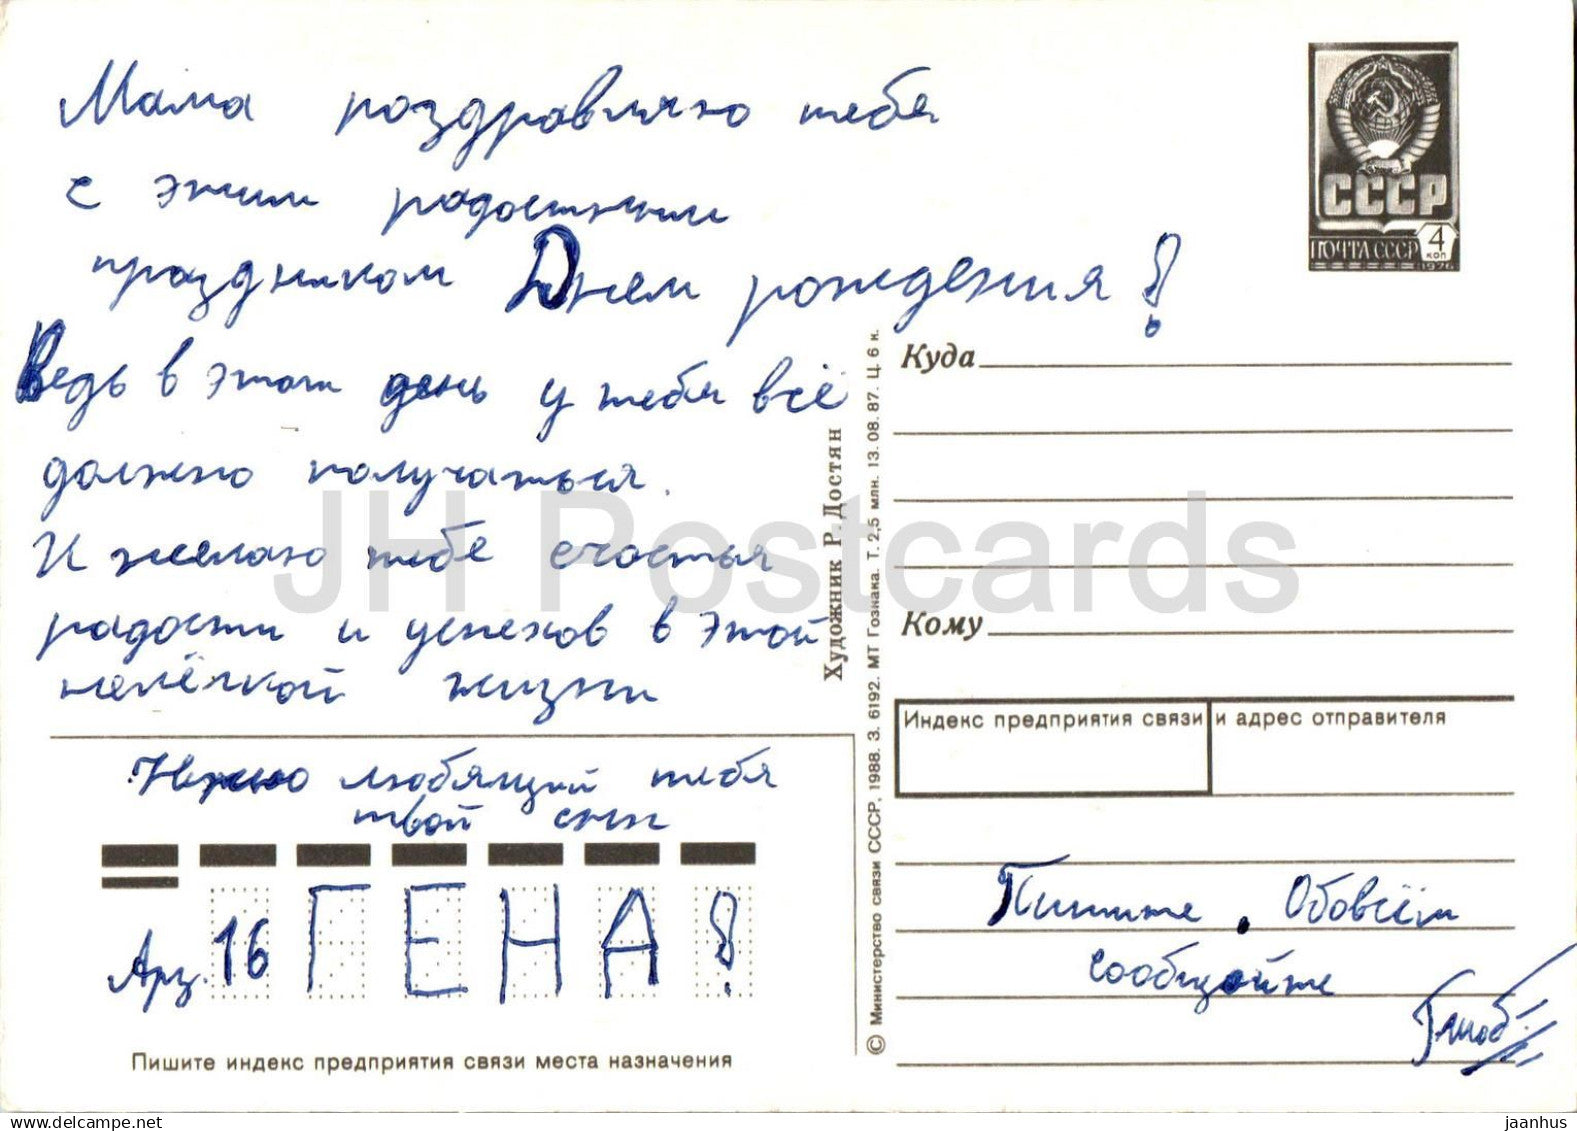 Мама поздравляю тебя
с этим радостным
праздником Днем рождения!
Ведь в этот день у тебя всё
должно получаться.
И желаю тебе счастья
радости и успехов в этой
нелёгкой жизни
Нежно любящий тебя
твой сын
Арз. 16 ГЕНА!
Пишите индекс предприятия связи места назначения
Художник Р. Достян
© Министерство связи СССР, 1988. З. 6192. МТ Гознака. Т. 2,5 млн. 13. 08. 87. Ц. 6 к.
СССР
ПОЧТА СССР 4 коп
1976
Куда
Кому
Индекс предприятия связи и адрес отправителя
Пишите. Обовсём
сообщяйте
JH Postcards
jaanhus